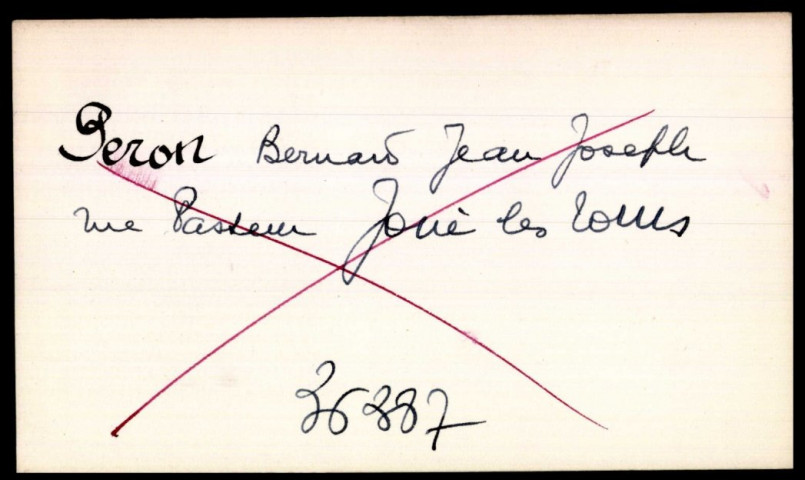 Peron Bernard Jean Joseph
rue Pasteur Joué les Tours
36887